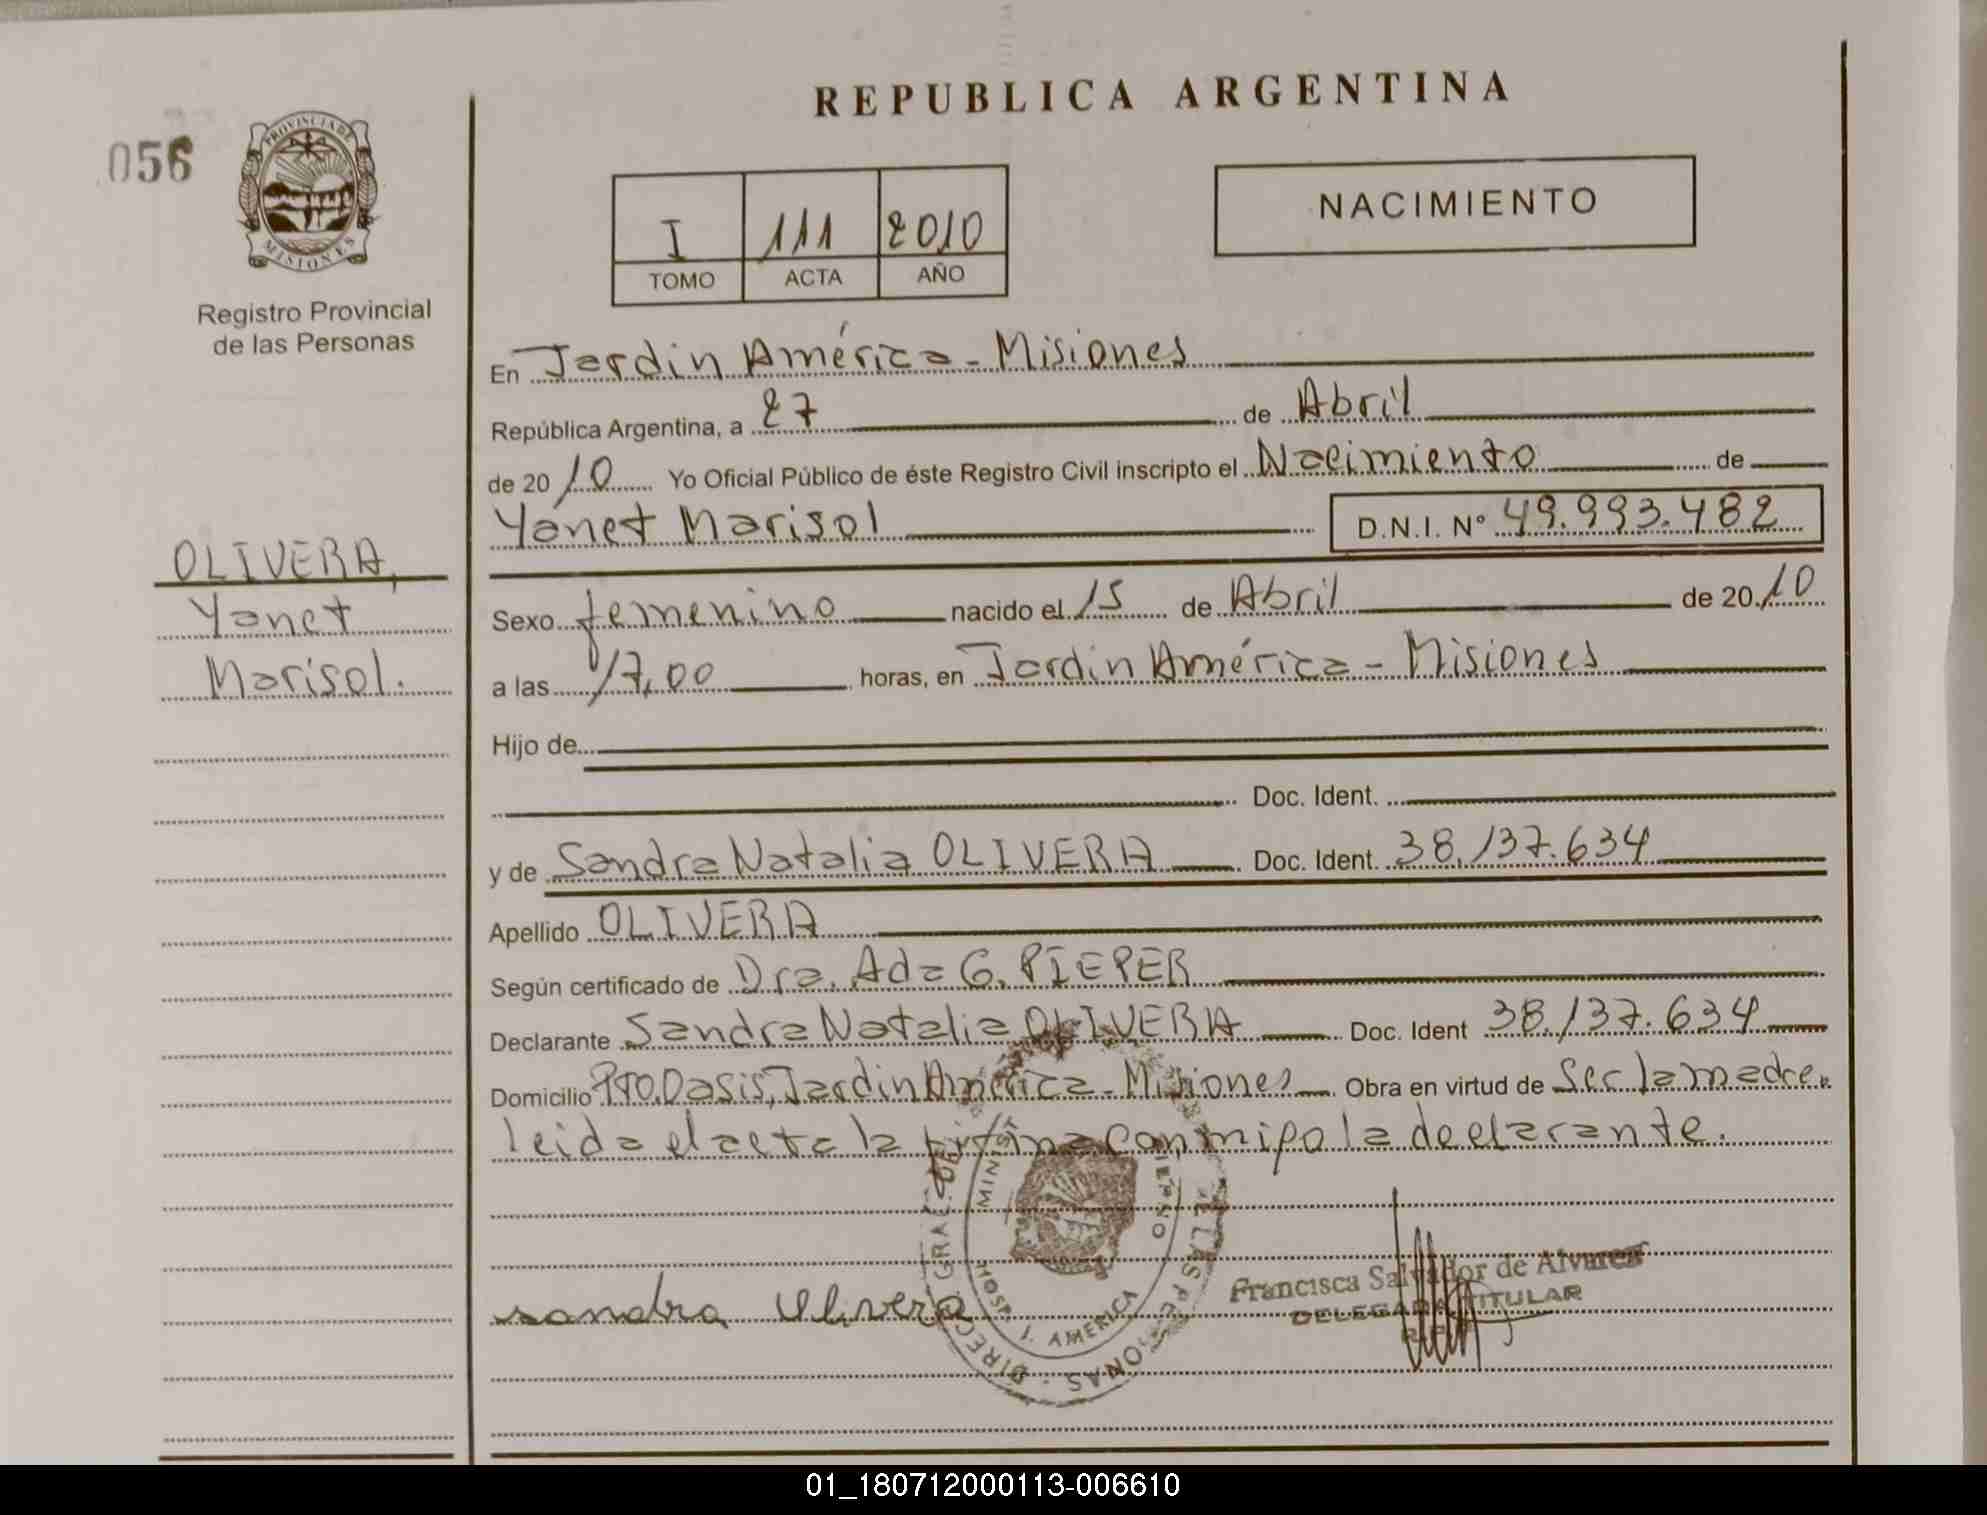 REPUBLICA ARGENTINA
056
PROVINCIA DE
MISIONES
Registro Provincial
de las Personas
I 111 2010
TOMO ACTA AÑO
NACIMIENTO
OLIVERA,
Yanet
Marisol.
En Jardin América - Misiones
República Argentina, a 27 de Abril
de 2010 Yo Oficial Público de éste Registro Civil inscripto el Nacimiento de
Yanet Marisol D.N.I. Nº 49.993.482
Sexo femenino nacido el 15 de Abril de 2010
a las 17,00 horas, en Jardin América - Misiones
Hijo de
Doc. Ident.
y de Sandra Natalia OLIVERA Doc. Ident. 38.137.634
Apellido OLIVERA
Según certificado de Dra. Ada G. PIEPER
Declarante Sandra Natalia OLIVERA Doc. Ident 38.137.634
Domicilio Oasis, Jardin América - Misiones Obra en virtud de Ser la madre.
leida el acta la firma con mi go la declarante.
Sandra Olivera
AMERICA
Francisca Salvador de Alvarez
DELEGADA TITULAR
01_180712000113-006610